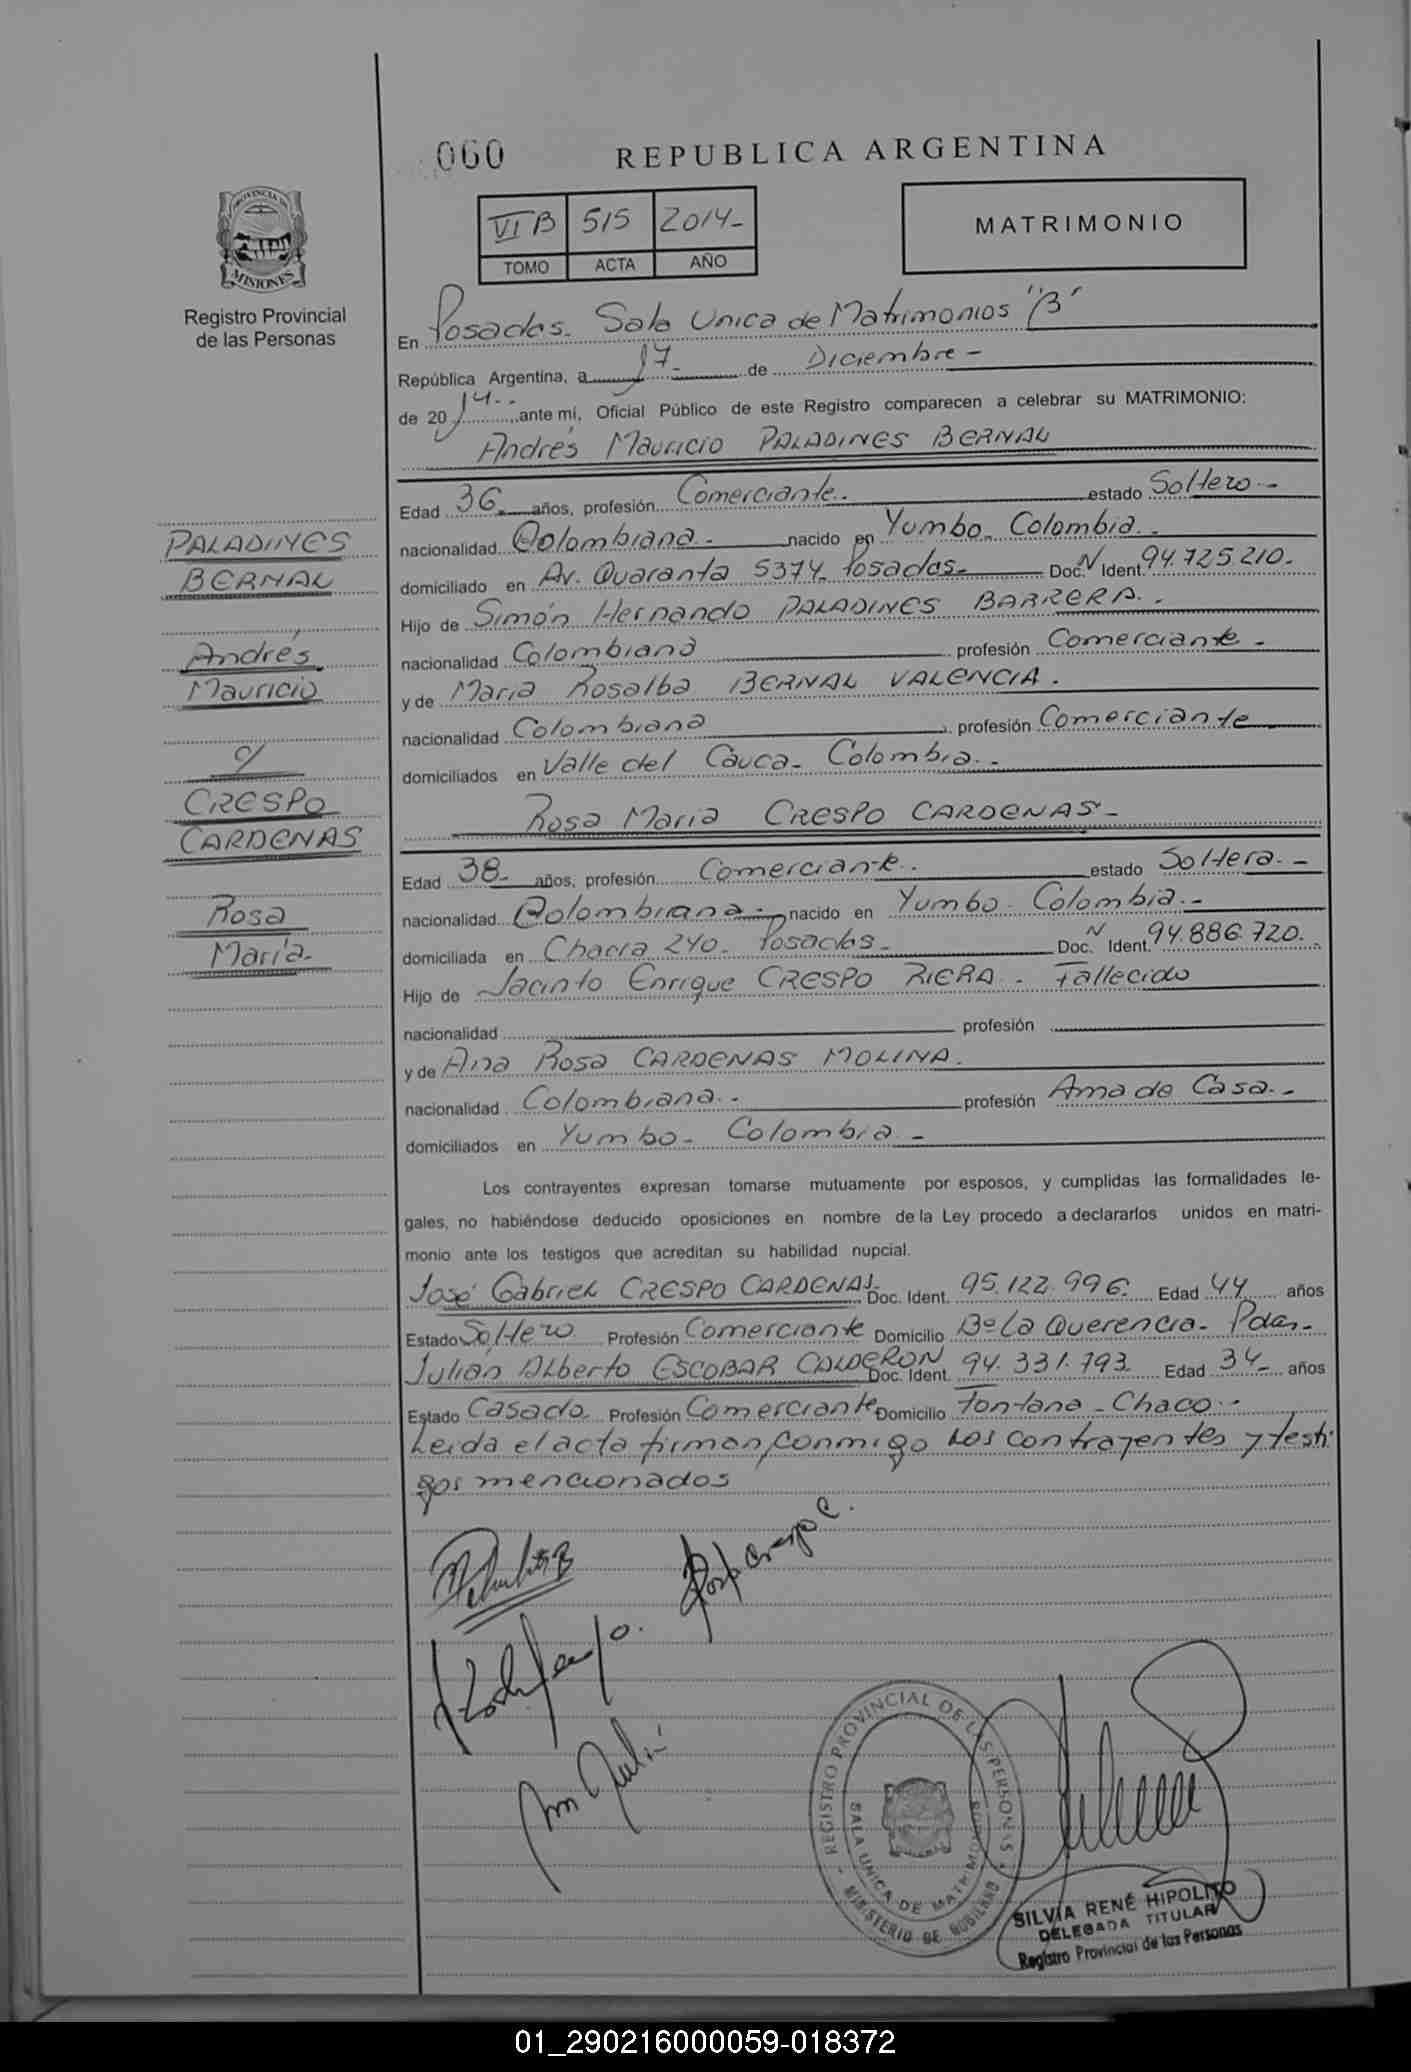 060 REPUBLICA ARGENTINA
PROVINCIA DE
MISIONES
Registro Provincial
de las Personas
VI B 515 2014-
TOMO ACTA AÑO
MATRIMONIO
En Posadas- Sala Unica de Matrimonios "B"
República Argentina, a 17- de Diciembre -
de 20 14-- ,ante mí, Oficial Público de este Registro comparecen a celebrar su MATRIMONIO:
Andrés Mauricio PALADINES BERNAL
Edad 36- años, profesión Comerciante. estado Soltero.-
nacionalidad Colombiana.- nacido en Yumbo- Colombia.-
domiciliado en Av. Quaranta 5374- Posadas- Doc. N Ident. 94.725.210.
Hijo de Simón Hernando PALADINES BARRERA.-
nacionalidad Colombiana profesión Comerciante.-
y de María Rosalba BERNAL VALENCIA.
nacionalidad Colombiana profesión Comerciante
domiciliados en Valle del Cauca- Colombia.-
Rosa María CRESPO CARDENAS-
Edad 38- años, profesión Comerciante.- estado Soltera.-
nacionalidad Colombiana.- nacido en Yumbo- Colombia.-
domiciliada en Chacra 240- Posadas- Doc. N Ident. 94.886.720.
Hijo de Jacinto Enrique CRESPO RIERA - Fallecido
nacionalidad profesión
y de Ana Rosa CARDENAS MOLINA.
nacionalidad Colombiana.- profesión Ama de Casa.-
domiciliados en Yumbo- Colombia.-
Los contrayentes expresan tomarse mutuamente por esposos, y cumplidas las formalidades le-
gales, no habiéndose deducido oposiciones en nombre de la Ley procedo a declararlos unidos en matri-
monio ante los testigos que acreditan su habilidad nupcial.
José Gabriel CRESPO CARDENAS- Doc. Ident. 95.122.996- Edad 44 años
Estado Soltero Profesión Comerciante Domicilio Bº La Querencia- Pdas-
Julián Alberto ESCOBAR CALDERON Doc. Ident. 94.331.793 Edad 34- años
Estado Casado Profesión Comerciante Domicilio Fontana - Chaco -
Leida el acta firman conmigo los contrayentes y testi-
gos mencionados
PALADINES
BERNAL
Andrés
Mauricio
c/
CRESPO
CARDENAS
Rosa
María-
Rosa Crespo C.
REGISTRO PROVINCIAL DE LAS PERSONAS
SALA UNICA DE MATRIMONIOS
MINISTERIO DE GOBIERNO
SILVIA RENÉ HIPOLITO
DELEGADA TITULAR
Registro Provincial de las Personas
01_290216000059-018372